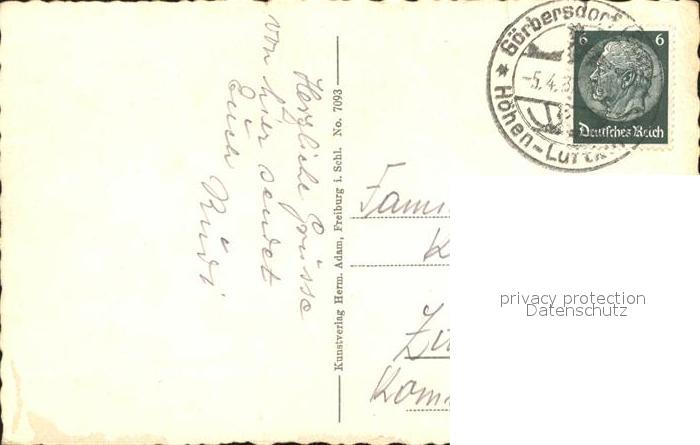 Herzliche Grüsse
von hier sendet
Euch
Rudi
Kunstverlag Herm. Adam, Freiburg i. Schl. No. 7093
* Görbersdorf
-5.4.3
Höhen-Luftk
6 6
Deutsches Reich
Fami
K
Kom
privacy protection
Datenschutz